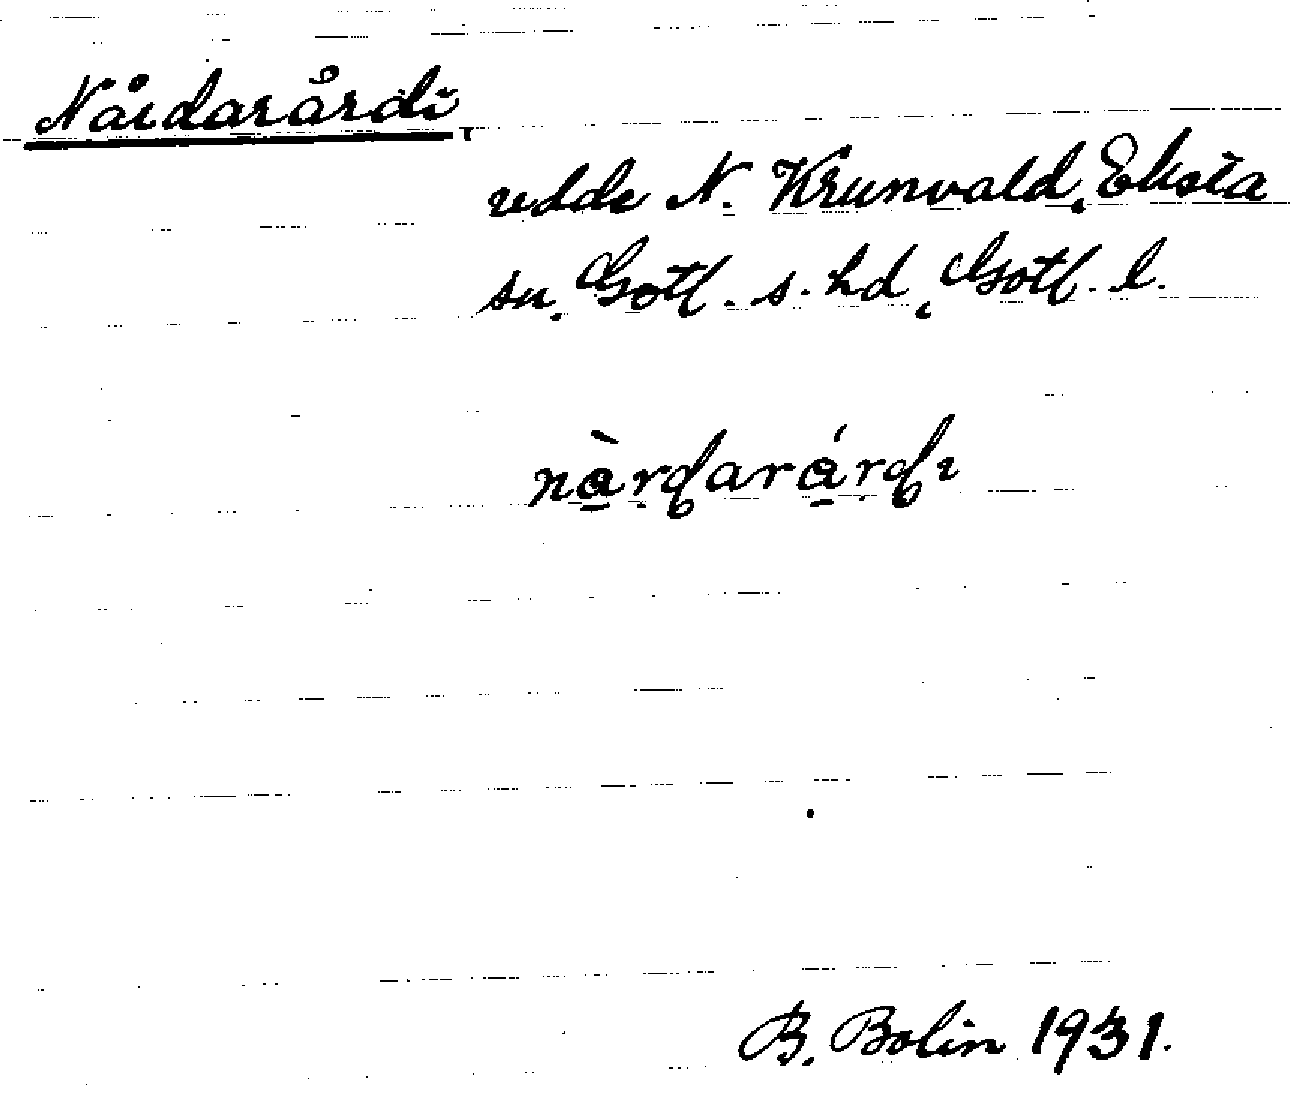 Nårdarårdi,
udde N. Krunvald, Eksta
sn, Gotl. s. hd, Gotl. l.
nàrdarárdı
B. Bolin 1931.